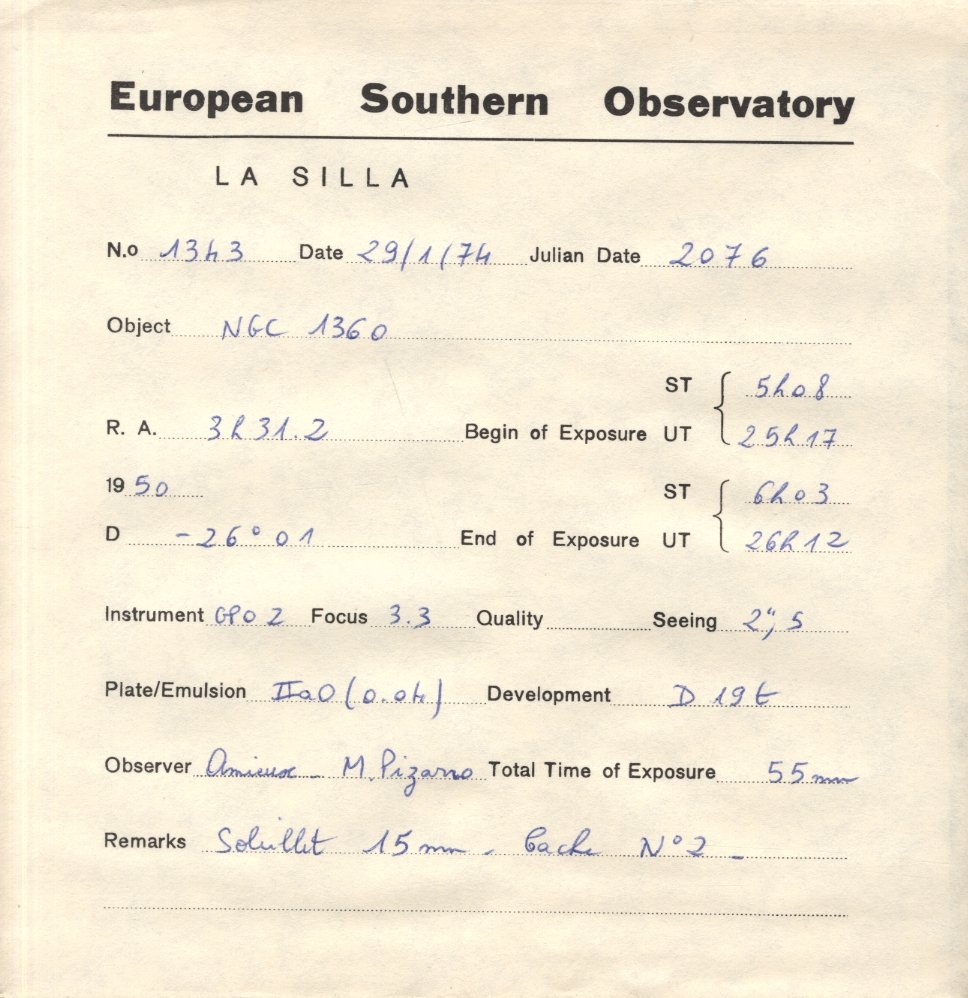 European Southern Observatory
LA SILLA
N.o 1343 Date 29/1/74 Julian Date 2076
Object NGC 1360
ST 5h08
R. A. 3h31.2 Begin of Exposure UT 25h17
1950 ST 6h03
D -26°01 End of Exposure UT 26h12
Instrument GPO 2 Focus 3.3 Quality Seeing 2",5
Plate/Emulsion IIaO (0.04) Development D 19t
Observer Amieux - M. Pizarro Total Time of Exposure 55mn
Remarks 15 mn - Cache N°2 -